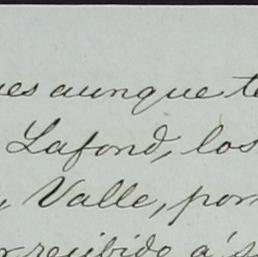 es aunque te
Lafond, los
, Valle, por
recibido á s